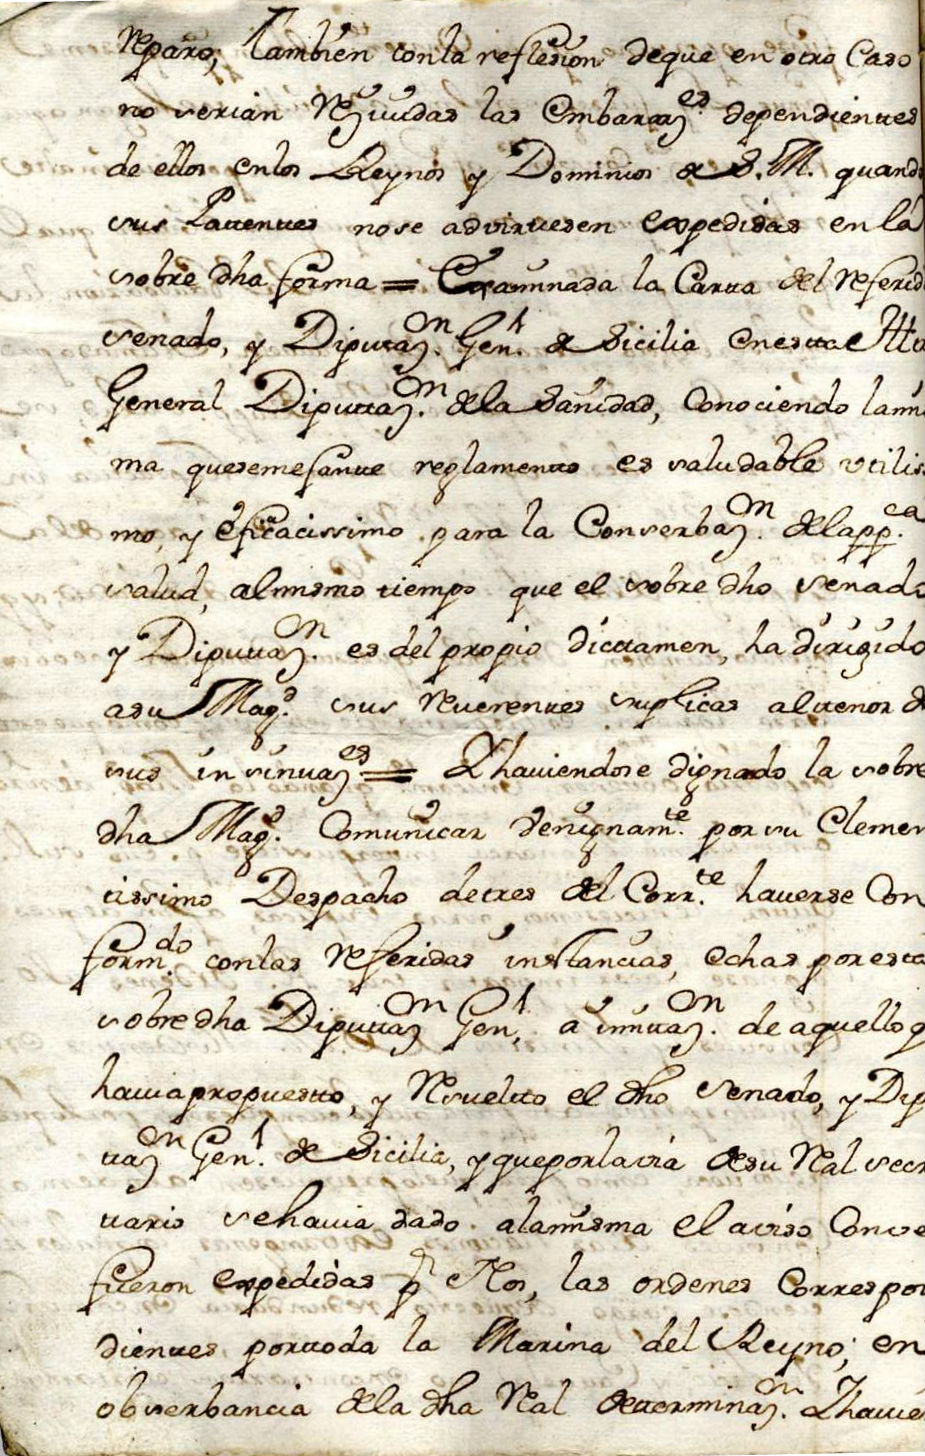 reparo; tambien con la reflexion de que en otro Caso
no serian Reziuidas las Embarcaz.es dependientes
de ellos en los Reynos y Dominios de S. M. quando
sus Pattentes no se advirtiesen expedidas en la
sobre dha forma = Examinada la Cartta del referid
senado, y Diputaz.on Gen.l de Sicilia en esta
General Diputtaz.on de la Sanidad, conociendo la mis
ma que semejante reglamento es saludable utilis
mo, y eficacissimo para la Conserbaz.on de la pp.ca
salud, al mismo tiempo que el sobre dho senado
y Diputtaz.on es del propio dictamen, ha dirigido
a su Mag.d sus reuerentes suplicas al tenor de
sus insinuaz.es = Y hauiendose dignado la sobre
dha Mag.d Comunicar benignam.te por su Clemen
tissimo Despacho de tres del Corr.te hauerse Con
form.do con las referidas instancias, echas por esta
sobre dha Diputtaz.on Gen.l, a imitaz.on de aquello q
hauia propuestto, y Resuelto el dho Senado, y Dip
taz.on Gen.l de Sicilia, y que por la via de su Real secr
tario se hauia dado a la misma el aviso Conve
fueron expedidas p.r Nos, las ordenes Correspon
dientes por toda la Marina del Reyno; en
obserbancia de la dha Real determinaz.on Y hauie